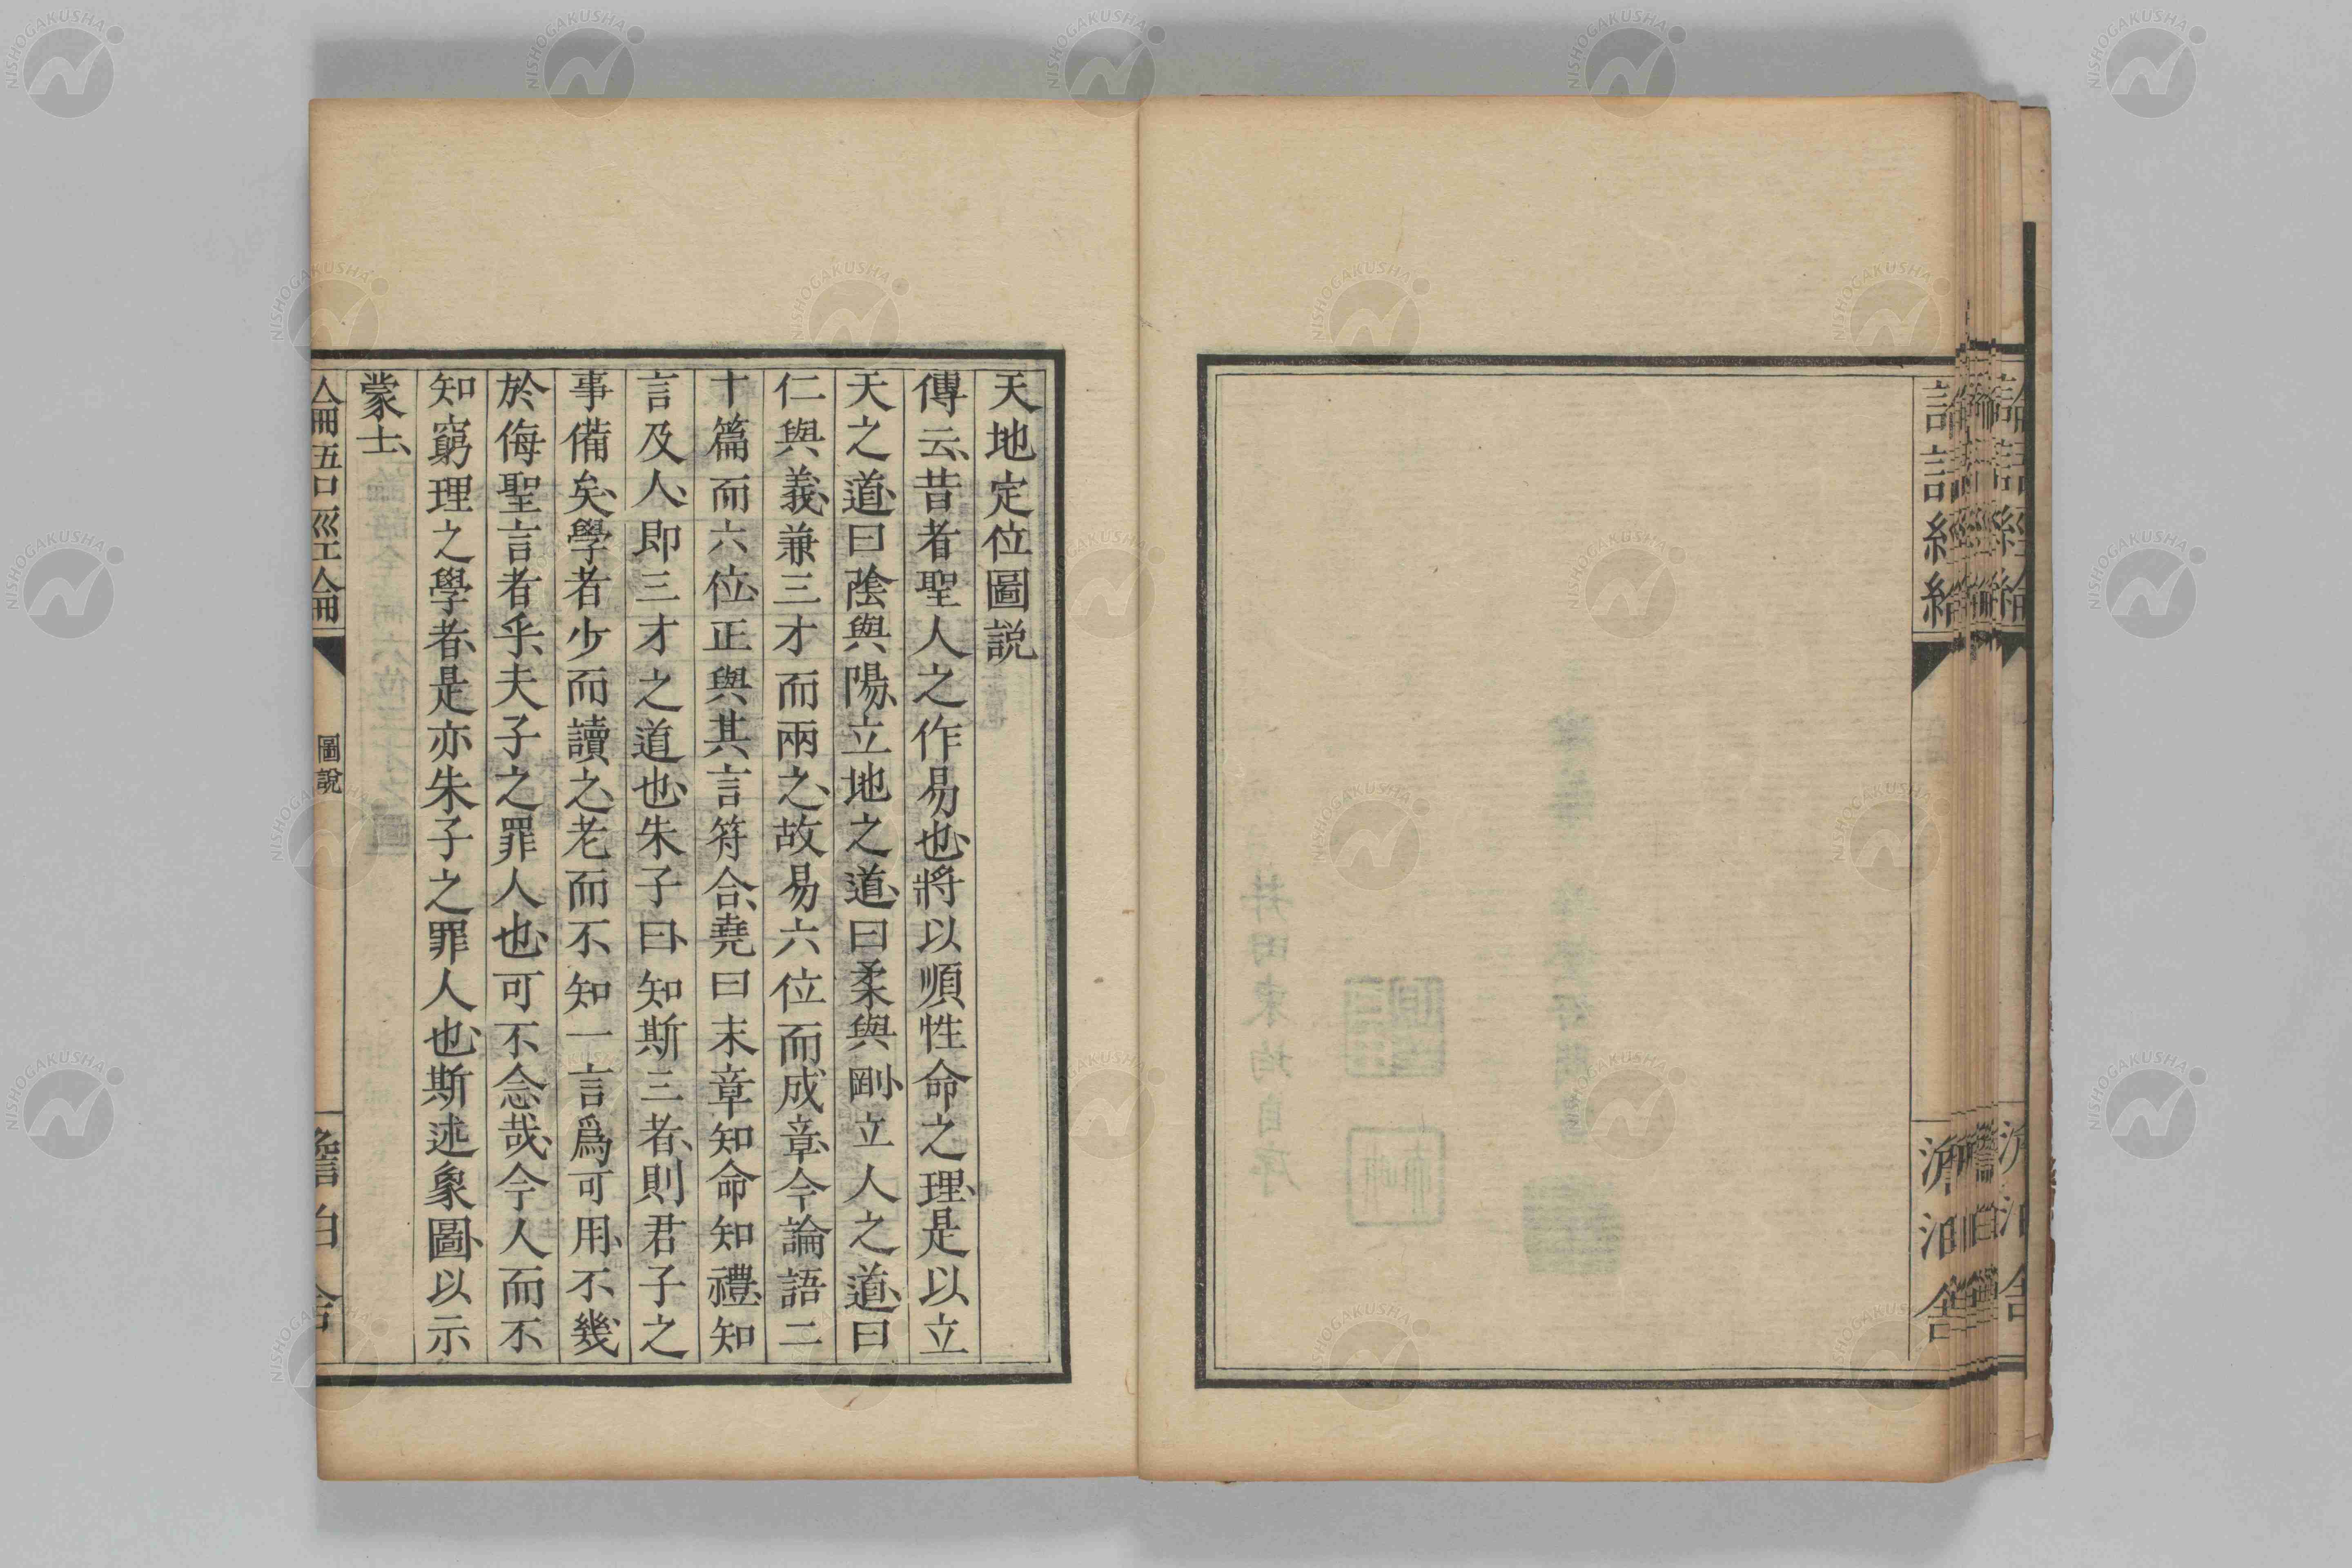 天地定位圖説
傳云、昔者聖人之作易也、將以順性命之理、是以立
天之道、曰陰與陽、立地之道、曰柔與剛、立人之道、曰
仁與義、兼三才而兩之、故易六位而成章、今論語二
十篇而六位、正與其言符合、堯曰末章知命知禮、知
言及人、即三才之道也、朱子曰、知斯三者、則君子之
事備矣、學者少而讀之、老而不知一言爲可用、不幾
於侮聖言者乎、夫子之罪人也、可不念哉、今人而不
知窮理之學者、是亦朱子之罪人也、斯述象圖、以示
蒙士、
論語經綸
圖説
澹泊舍
NISHOGAKUSHA